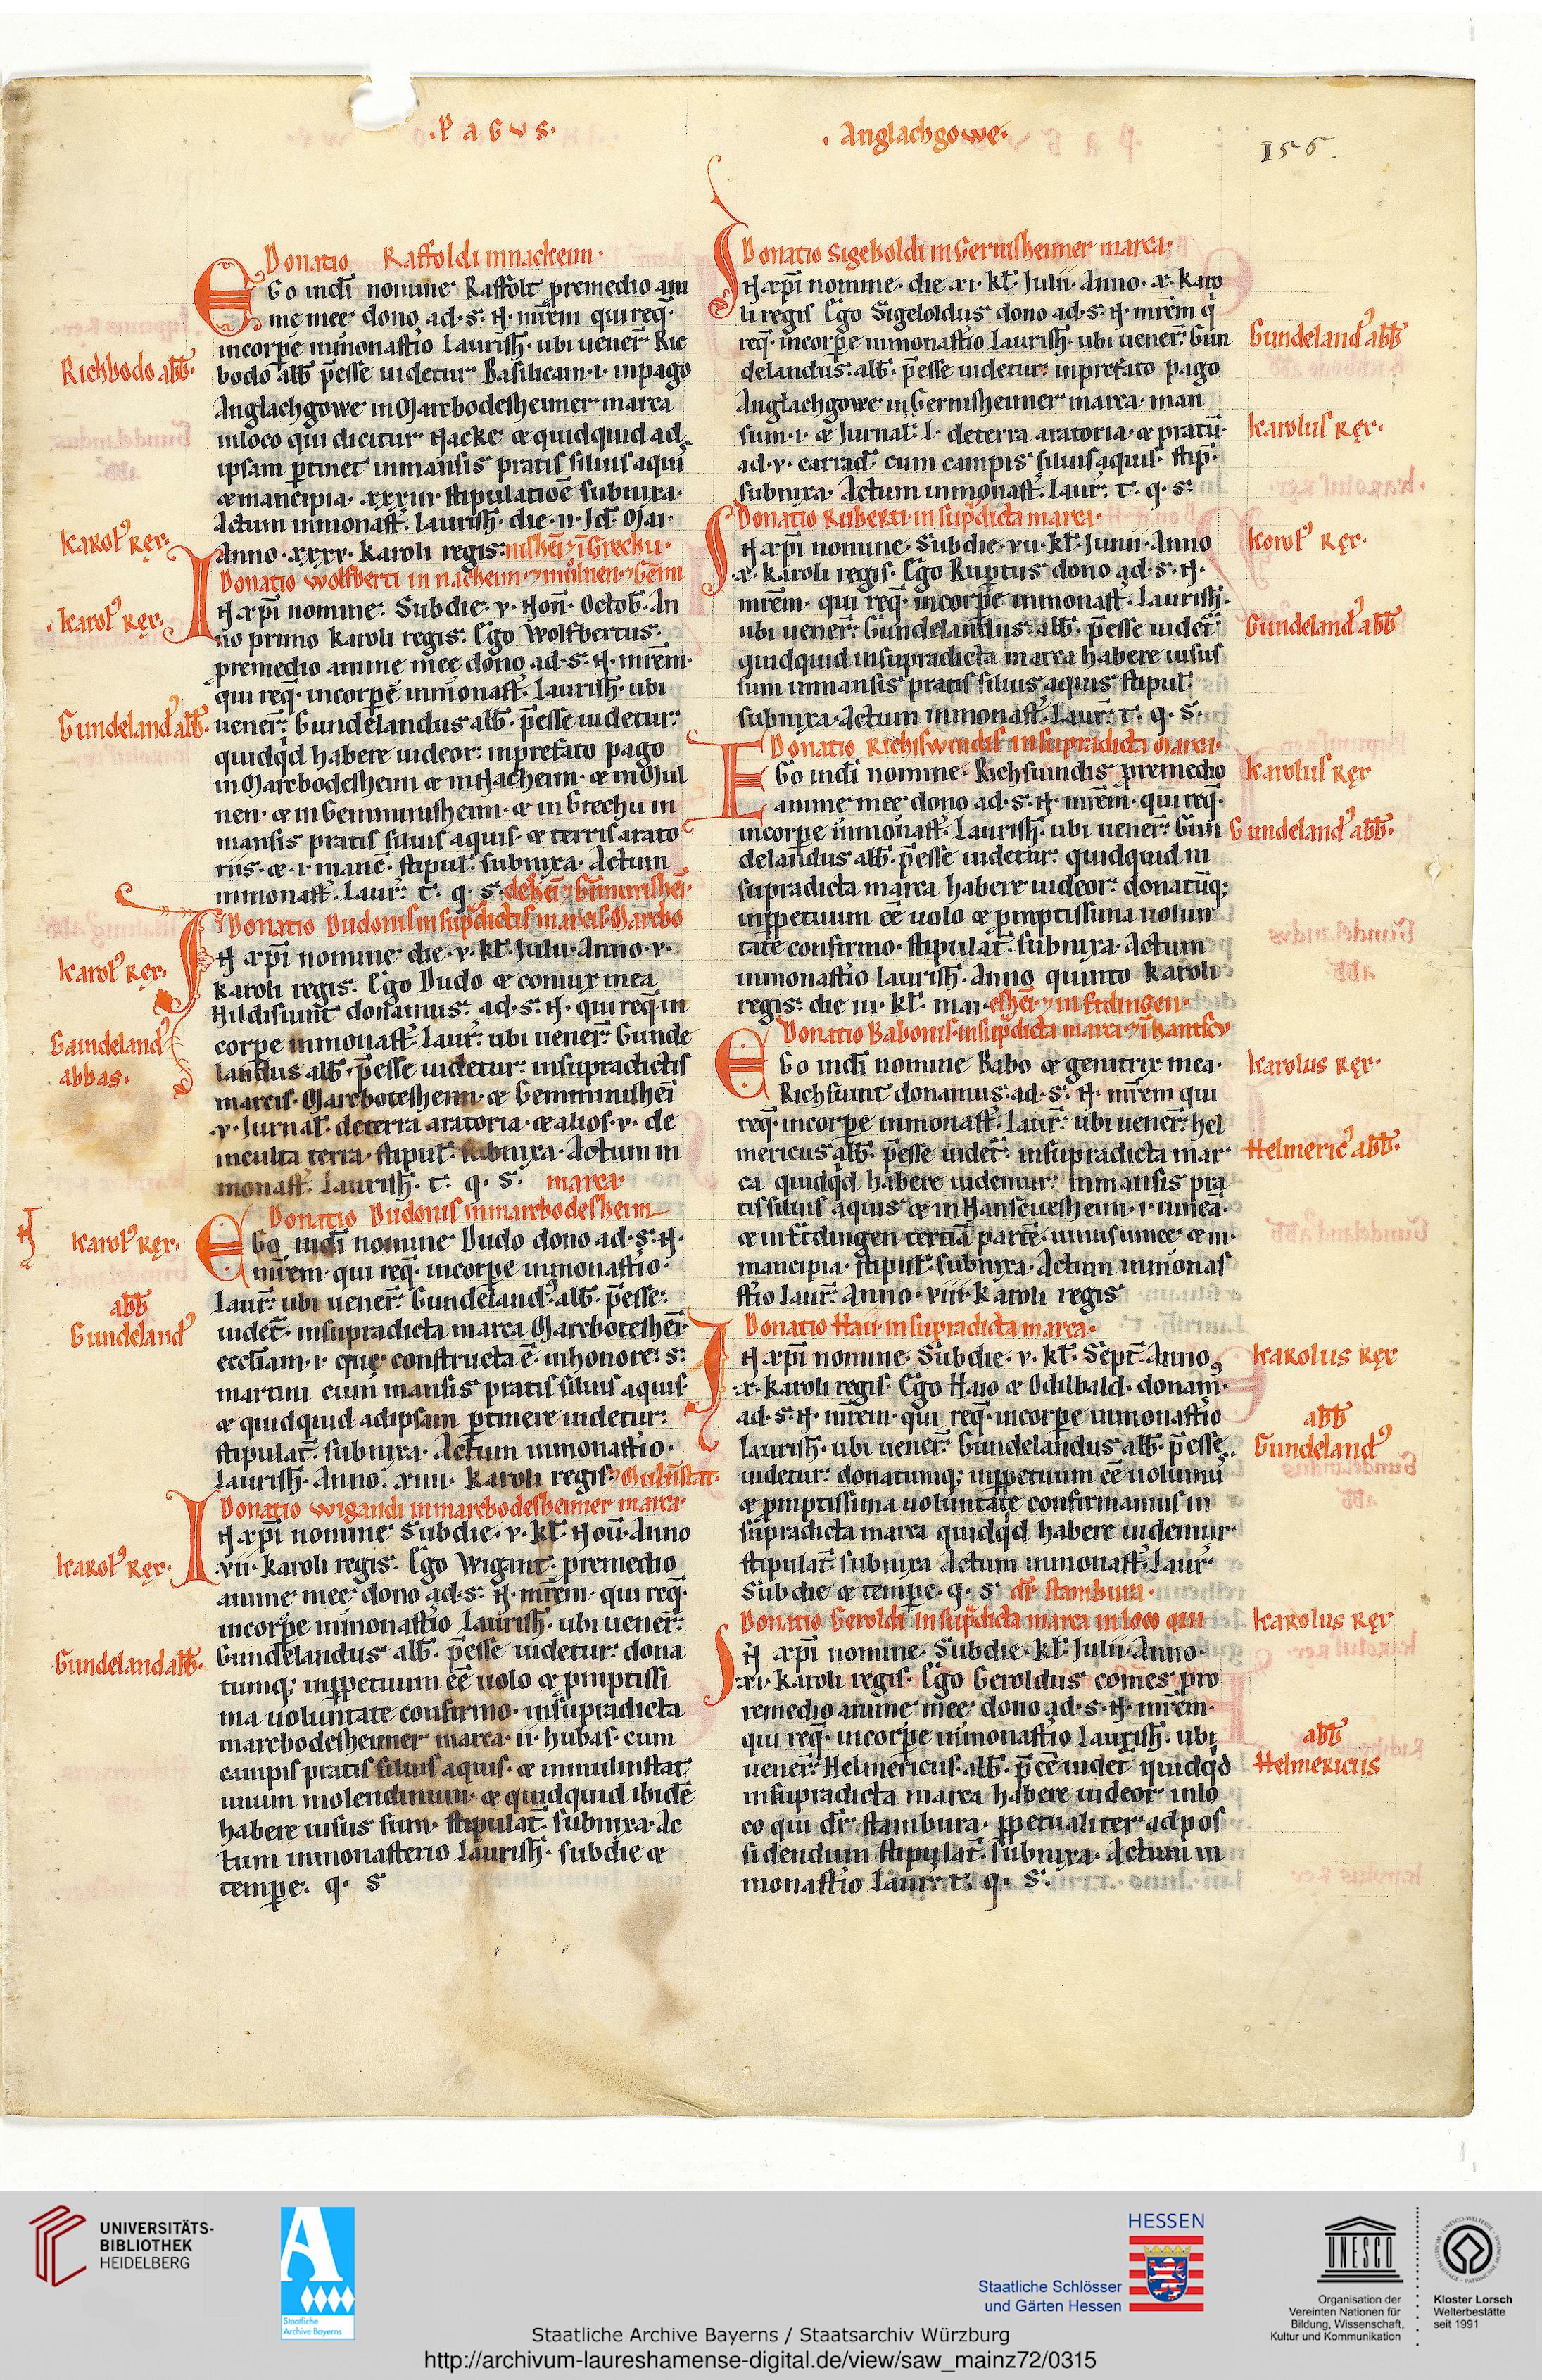 · P a G v s ·
· Anglachgowe ·
156.
Donatio Raffoldi in nackeim ·
EGo in dī nomine Raffolt p̱ remedio ani
me mee dono ad · s · N · mr̄em qui req̄ ·
in corpe in monast̄io Laurish̄ · ubi uener̄ Ric
bodo abb̄ p̄esse uidetur Basilicam · i · in pago
Anglachgowe in Marcbodesheimer marca
in loco qui dicitur Nacke et quidquid ad
ipsam ptinet in mansis pratis siluis aqui
et mancipia · xxxiii · stipulatioē subnixa ·
Actum in monast̄ · Laurish̄ · die · ii · Id · Mai ·
Anno · xxxv · Karoli regis · nishei · ⁊ ī Grechu ·
Donatio Wolfberti in nacheim · ⁊ mulnen · ⁊ Gemī
IN xp̄i nomine · Sub die · v · Non̄ · Octob̄ · An
no primo karoli regis · Ego Wolfbertus ·
p̱ remedio anime mee dono ad · s · N · mr̄em ·
qui req̄ · in corpe in monast̄ · Laurish̄ · ubi
uener̄ · Gundelandus abb̄ · p̄esse uidetur ·
quidqd habere uideor · in prefato pago
in Marcbodesheim et in Nacheim · et in Mul
nen · et in Gemminisheim · et in Grechu in
mansis pratis siluis aquis · et terris arato
riis · et · i · manē · stipul̄ · subnixa · Actum
in monast̄ · Laur̄ · t · q · s · deshei · ⁊ Gimmishei ·
Donatio Dudonis in sup̄dictis marcis · Marcbo
IN xp̄i nomine die · v · kl̄ · Julii · Anno · v ·
karoli regis · Ego Dudo et coniux mea
Hildisiunt donamus · ad · s · N · qui req̄ · in
corpe in monast̄ · Laur̄ · ubi uener̄ · Gunde
landus abb̄ · p̄esse uidetur · in supradictis
marcis · Marcbotesheim · et Gemminishei
· v · Jurnal̄ · de terra aratoria · et alios · v · de
inculta terra · stipul̄ · subnixa · Actum in
monast̄ · Laurish̄ · t · q · s · marca ·
Donatio Dudonis in marcbodesheim
EGo in dī nomine Dudo dono ad · s · N ·
mr̄em · qui req̄ · in corpe in monast̄io ·
Laur̄ · ubi uener̄ · Gundeland⁹ · abb̄ · p̄esse ·
uidet̄ · in supradicta marca Marcboteshei ·
eccl̄iam · i · que constructa ē · in honore · s ·
martini cum mansis pratis siluis aquis ·
et quidquid ad ipsam p̱tinere uidetur ·
stipulat̄ · subnixa · Actum in monast̄io ·
Laurish̄ · Anno · xiiii · karoli regis · ⁊ Mulīstat ·
Donatio Wigandi in marcbodesheimer marca ·
IN xp̄i nomine Sub die · v · kl̄ · Nou̅ · Anno
· vii · karoli regis · Ego Wigant · p̱ remedio
anime mee dono ad · s · N · mr̄em · qui req̄ ·
in corpe in monast̄io Laurish̄ · ubi uener̄ ·
Gundelandus abb̄ · p̄esse uidetur · dona
tumq; in pp̱etuum eē uolo et p̱mptissi
ma uoluntate confirmo · in supradicta
marcbodesheimer marca · ii · hubas · cum
campis pratis siluis aquis · et in mulinstat
unum molendinum · et quidquid ibidē
habere uisus sum · stipulat̄ · subnixa · Ac
tum in monasterio Laurish̄ · sub die et
tempe · q · s
Richbodo abb̄ ·
karol⁹ rex ·
· karol⁹ rex ·
Gundeland⁹ abb̄ ·
karol⁹ rex ·
Gaundeland⁹
abbas ·
karol⁹ rex ·
abb̄
Gundeland⁹
karol⁹ rex ·
Gundeland abb̄ ·
Donatio Sigeboldi in Gernisheimer marca ·
IN xp̄i nomine · die · xi · kl̄ · Julii · Anno · x · Karo
li regis Ego Sigeloldus dono ad · s · N · mr̄em q
req̄ · in corpe in monast̄io Laurish̄ · ubi uener̄ · Gun
delandus · abb̄ · p̄esse uidetur · in prefato pago
Anglachgowe in Gernisheimer marca · man
sum · i · et Jurnal̄ · l · de terra aratoria · et pratū ·
ad · v · carrad̄ · cum campis siluis aquis · stip̄ ·
subnixa · Actum in monast̄ · Laur̄ · t · q · s ·
Donatio Ruberti · in sup̄dicta marca ·
IN xp̄i nomine · Sub die · vii · kl̄ · Junii · Anno
· x · karoli regis · Ego Rup̱tus dono ad · s · N ·
mr̄em · qui req̄ · in corpe in monast̄ · Laurish̄ ·
ubi uener̄ · Gundelandus · abb̄ · p̄esse uidet̄
quidquid in supradicta marca habere uisus
sum in mansis pratis siluis aquis stipul̄
subnixa · Actum in monast̄ · Laur̄ · t · q · s ·
Donatio Richiswindis in supradicta Marca ·
EGo in dī nomine · Richsuindis p̱ remedio
anime mee dono ad · s · N · mr̄em · qui req̄ ·
in corpe in monast̄ · Laurish̄ · ubi uener̄ · Gun
delandus abb̄ · p̄esse uidetur · quidquid in
supradicta marca habere uideor · donatūq;
in pp̱etuum eē uolo et p̱mptissima uolun
tate confirmo · stipulat̄ · subnixa · Actum
in monast̄io Laurish̄ · Anno quinto karoli
regis · die iii · kl̄ · mai · eshei · ⁊ in Etdingen ·
Donatio Babonis · in sup̄dicta marca · ⁊ ī hantscv
EGo in dī nomine Babo et genitrix mea ·
Richsiunt donamus · ad · s · N · mr̄em qui
req̄ · in corpe in monast̄ · Laur̄ · ubi uener̄ · hel
mericus abb̄ · p̄esse uidet̄ · in supradicta mar
ca quidqd habere uidemur · in mansis pra
tis siluis aquis et in Hanscuesheim · i · uinea ·
et in Etdingen tercia partē · unius uinee et iii ·
mancipia · stipul̄ · subnixa · Actum in monas
st̄io Laur̄ · Anno · viii · karoli regis
Donatio Haii · in supradicta marca ·
IN xp̄i nomine · Sub die · v · kl̄ · Sept̄ · Anno
· x · karoli regis · Ego Haio et Odilbald · donam⁹
ad · s · N · mr̄em · qui req̄ · in corpe in monast̄io
laurish̄ · ubi uener̄ · Gundelandus abb̄ · p̄esse
uidetur · donatumq; in pp̱etuum eē uolumu
et p̱mptissima uoluntate confirmamus in
supradicta marca quidqd habere uidemur ·
stipulat̄ subnixa Actum in monast̄ · Laur̄
Sub die et tempe · q · s dr̄ stambura ·
Donatio Geroldi in sup̄dicta marca in loco qui
IN xp̄i nomine · Sub die · kl̄ · Julii · Anno ·
· xi · karoli regis · Ego Geroldus comes pro
remedio anime mee dono ad · s · N · mr̄em ·
qui req̄ · in corpe in monast̄io Laurish̄ · ubi
uener̄ · Helmericus · abb̄ · p̄eē uidet̄ quidqd
in supradicta marca habere uideor in lo
co qui dr̄ stambura · pp̱etualiter ad pos
sidendum stipulat̄ · subnixa · Actum in
monast̄io Laur̄ · t · q · s ·
Gundeland⁹ abb̄
karolus rex ·
korol⁹ rex ·
Gundeland⁹ abb̄
karolus rex
Gundeland⁹ abb̄ ·
karolus rex ·
Helmeric⁹ abb̄ ·
karolus rex
abb̄
Gundeland⁹
karolus rex
abb̄
Helmericus
UNIVERSITÄTS-
BIBLIOTHEK
HEIDELBERG
Staatliche
Archive Bayerns
HESSEN
Staatliche Schlösser
und Gärten Hessen
UNESCO
Organisation der
Vereinten Nationen für
Bildung, Wissenschaft,
Kultur und Kommunikation
Kloster Lorsch
Welterbestätte
seit 1991
Staatliche Archive Bayerns / Staatsarchiv Würzburg
http://archivum-laureshamense-digital.de/view/saw_mainz72/0315